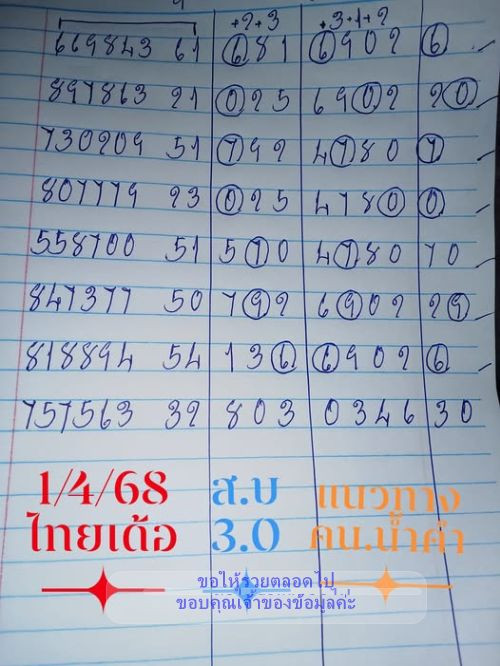 +2+3 +3+1+2
669843 61 681 6902 6
897863 21 025 6902 20
730209 51 792 4780 7
807779 23 025 4780 0
558700 51 570 4780 70
847377 50 792 6902 29
818894 54 136 6902 6
757563 32 803 0346 30
1/4/68 ส.บ แนวทาง
ไทยเด้อ 3.0 คน.น้ำคำ
ขอให้รวยตลอดไป
ขอบคุณเจ้าของข้อมูลค่ะ